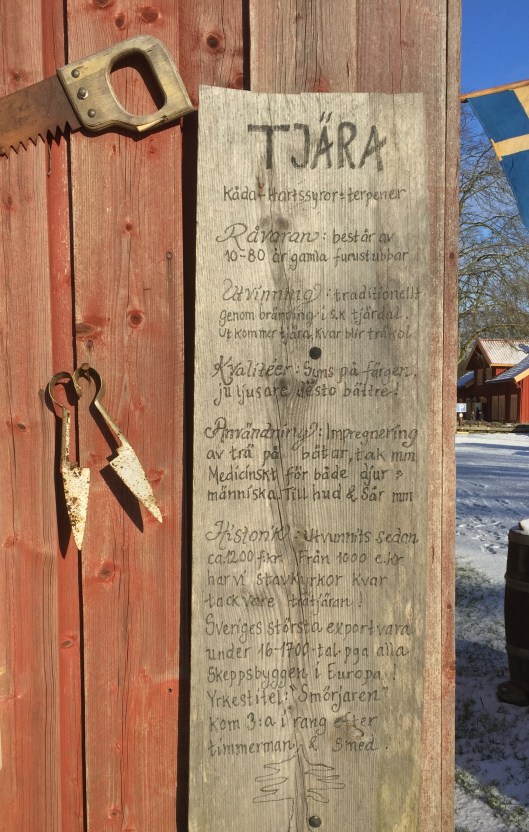 TJÄRA
Kåda-Hartssyror=terpener
Råvaran: består av
10-80 år gamla furustubbar
Utvinning: traditionellt
genom bränning i s.k tjärdal.
Ut kommer tjära kvar blir träkol
Kvalitéer: Syns på färgen,
ju ljusare desto bättre!
Användning: Impregnering
av trä på båtar, tak mm
Medicinskt för både djur &
människa. Till hud & sår mm
Historik: Utvunnits sedan
ca.1200 f.kr. Från 1000 e.kr
har vi stavkyrkor kvar
tack vare trätjäran!
Sveriges största exportvara
under 16-1700-tal. pga alla
Skeppsbyggen i Europa!
Yrkestitel: "Smörjaren"
kom 3:a i rang efter
timmerman, & Smed.